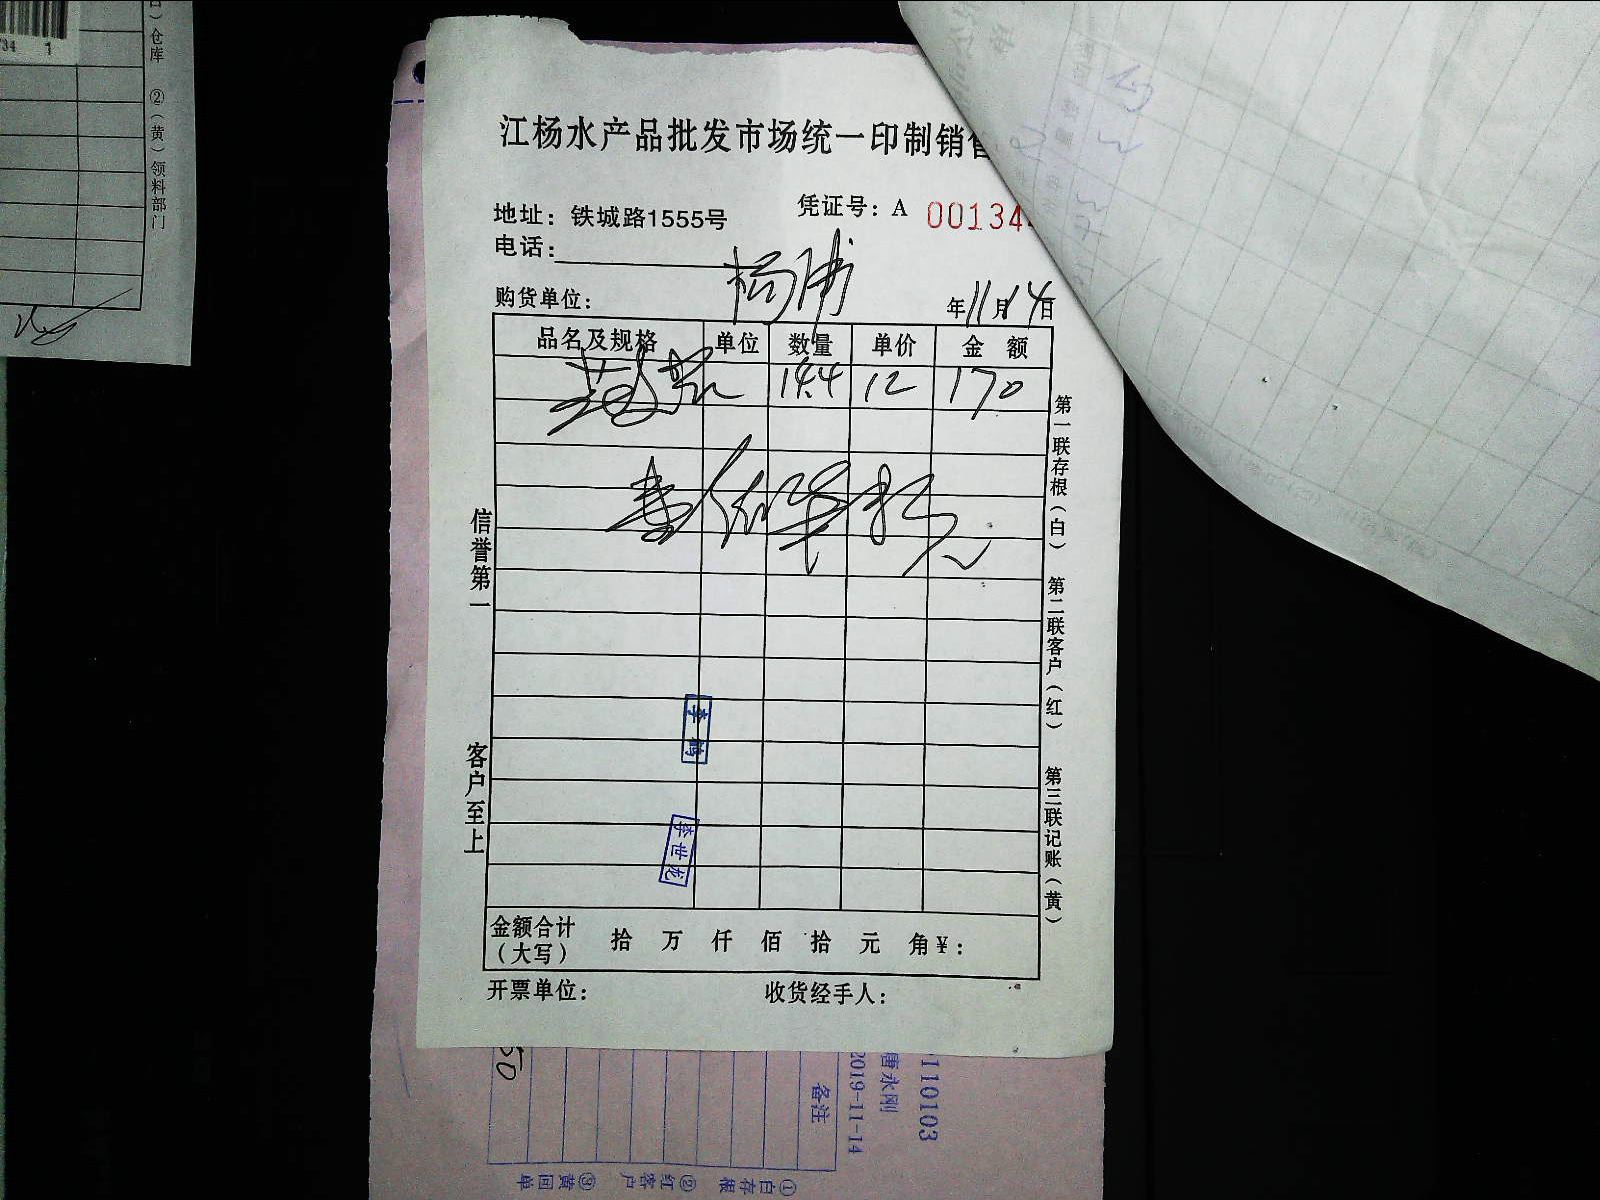 江杨水产品批发市场统一印制销售
地址：铁城路1555号
凭证号：A 00134
电话：
购货单位：杨浦
年11月14日
品名及规格 单位 数量 单价 金额
14.4 12 170
信誉第一
客户至上
第一联存根（白） 第二联客户（红） 第三联记账（黄）
李鹤
李世龙
金额合计（大写） 拾 万 仟 佰 拾 元 角 ￥：
开票单位： 收货经手人：
734 1
仓库 ②（黄）领料部门
50
备注
110103
唐永刚
2019-11-14
①白存根 ②红客户 ③黄回单